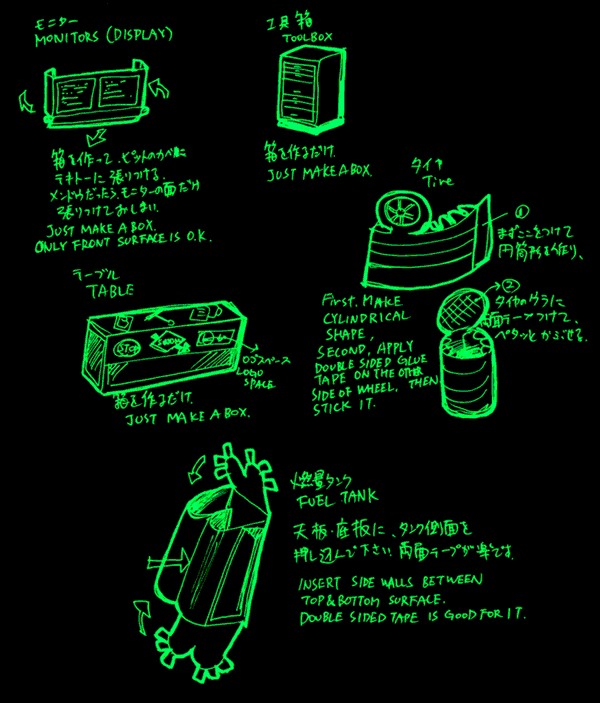 モニター
MONITORS (DISPLAY)
箱を作って、ピットのかべに
テキトーに張りつける。
メンドウだったら、モニターの面だけ
張りつけておしまい。
JUST MAKE A BOX.
ONLY FRONT SURFACE IS O.K.
工具箱
TOOLBOX
箱を作るだけ。
JUST MAKE A BOX.
タイヤ
Tire
①
まずここをつけて
円筒形を作り、
②
タイヤのウラに
両面テープつけて、
ペタッとかぶせる。
First, MAKE
CYLINDRICAL
SHAPE,
SECOND, APPLY
DOUBLE SIDED GLUE
TAPE ON THE OTHER
SIDE OF WHEEL. THEN
STICK IT.
テーブル
TABLE
STOP
ロゴスペース
LOGO
SPACE
箱を作るだけ。
JUST MAKE A BOX.
燃量タンク
FUEL TANK
天板・底板に、タンク側面を
押し込んで下さい。両面テープが楽です。
INSERT SIDE WALLS BETWEEN
TOP & BOTTOM SURFACE.
DOUBLE SIDED TAPE IS GOOD FOR IT.